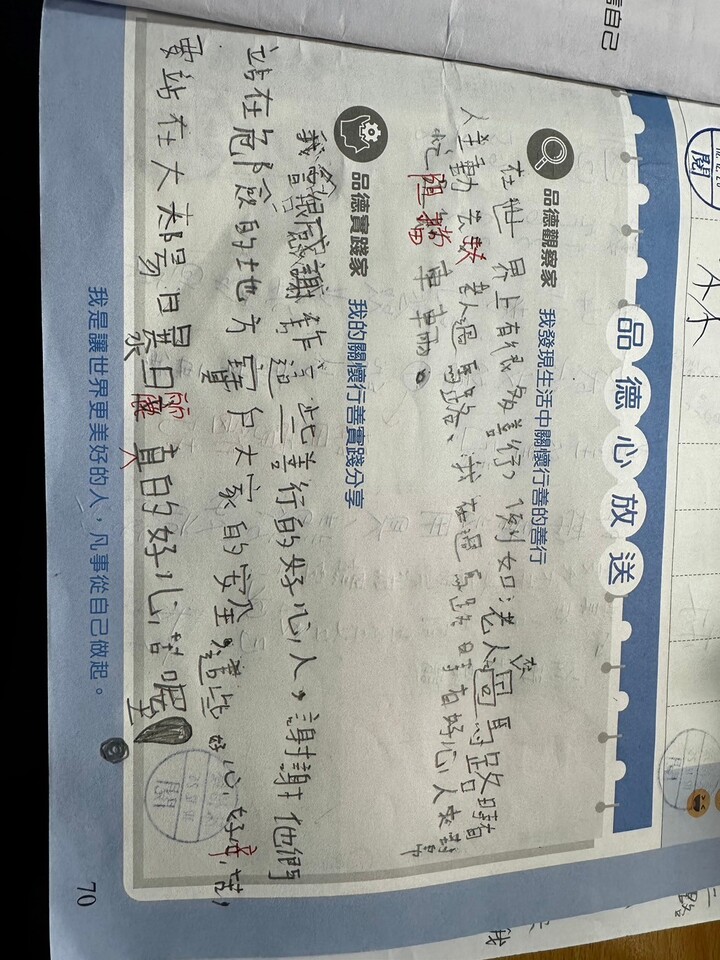 品德心放送
品德觀察家 我發現生活中關懷行善的善行
在世界上有很多善行，例如：老人過馬路時有
人主動去扶老人過馬路、我在過馬路時有好心人來對
忙阻擋車車輛。
品德實踐家 我的關懷行善實踐分享
我會很感謝幹這些善行的好心人，謝謝他們
站在危險的地方寶貝大家的安全這些好心好辛苦，
要站在大太陽日曝日曬所以真的好心苦喔
我是讓世界更美好的人，凡事從自己做起。
70
閱
閱
自己